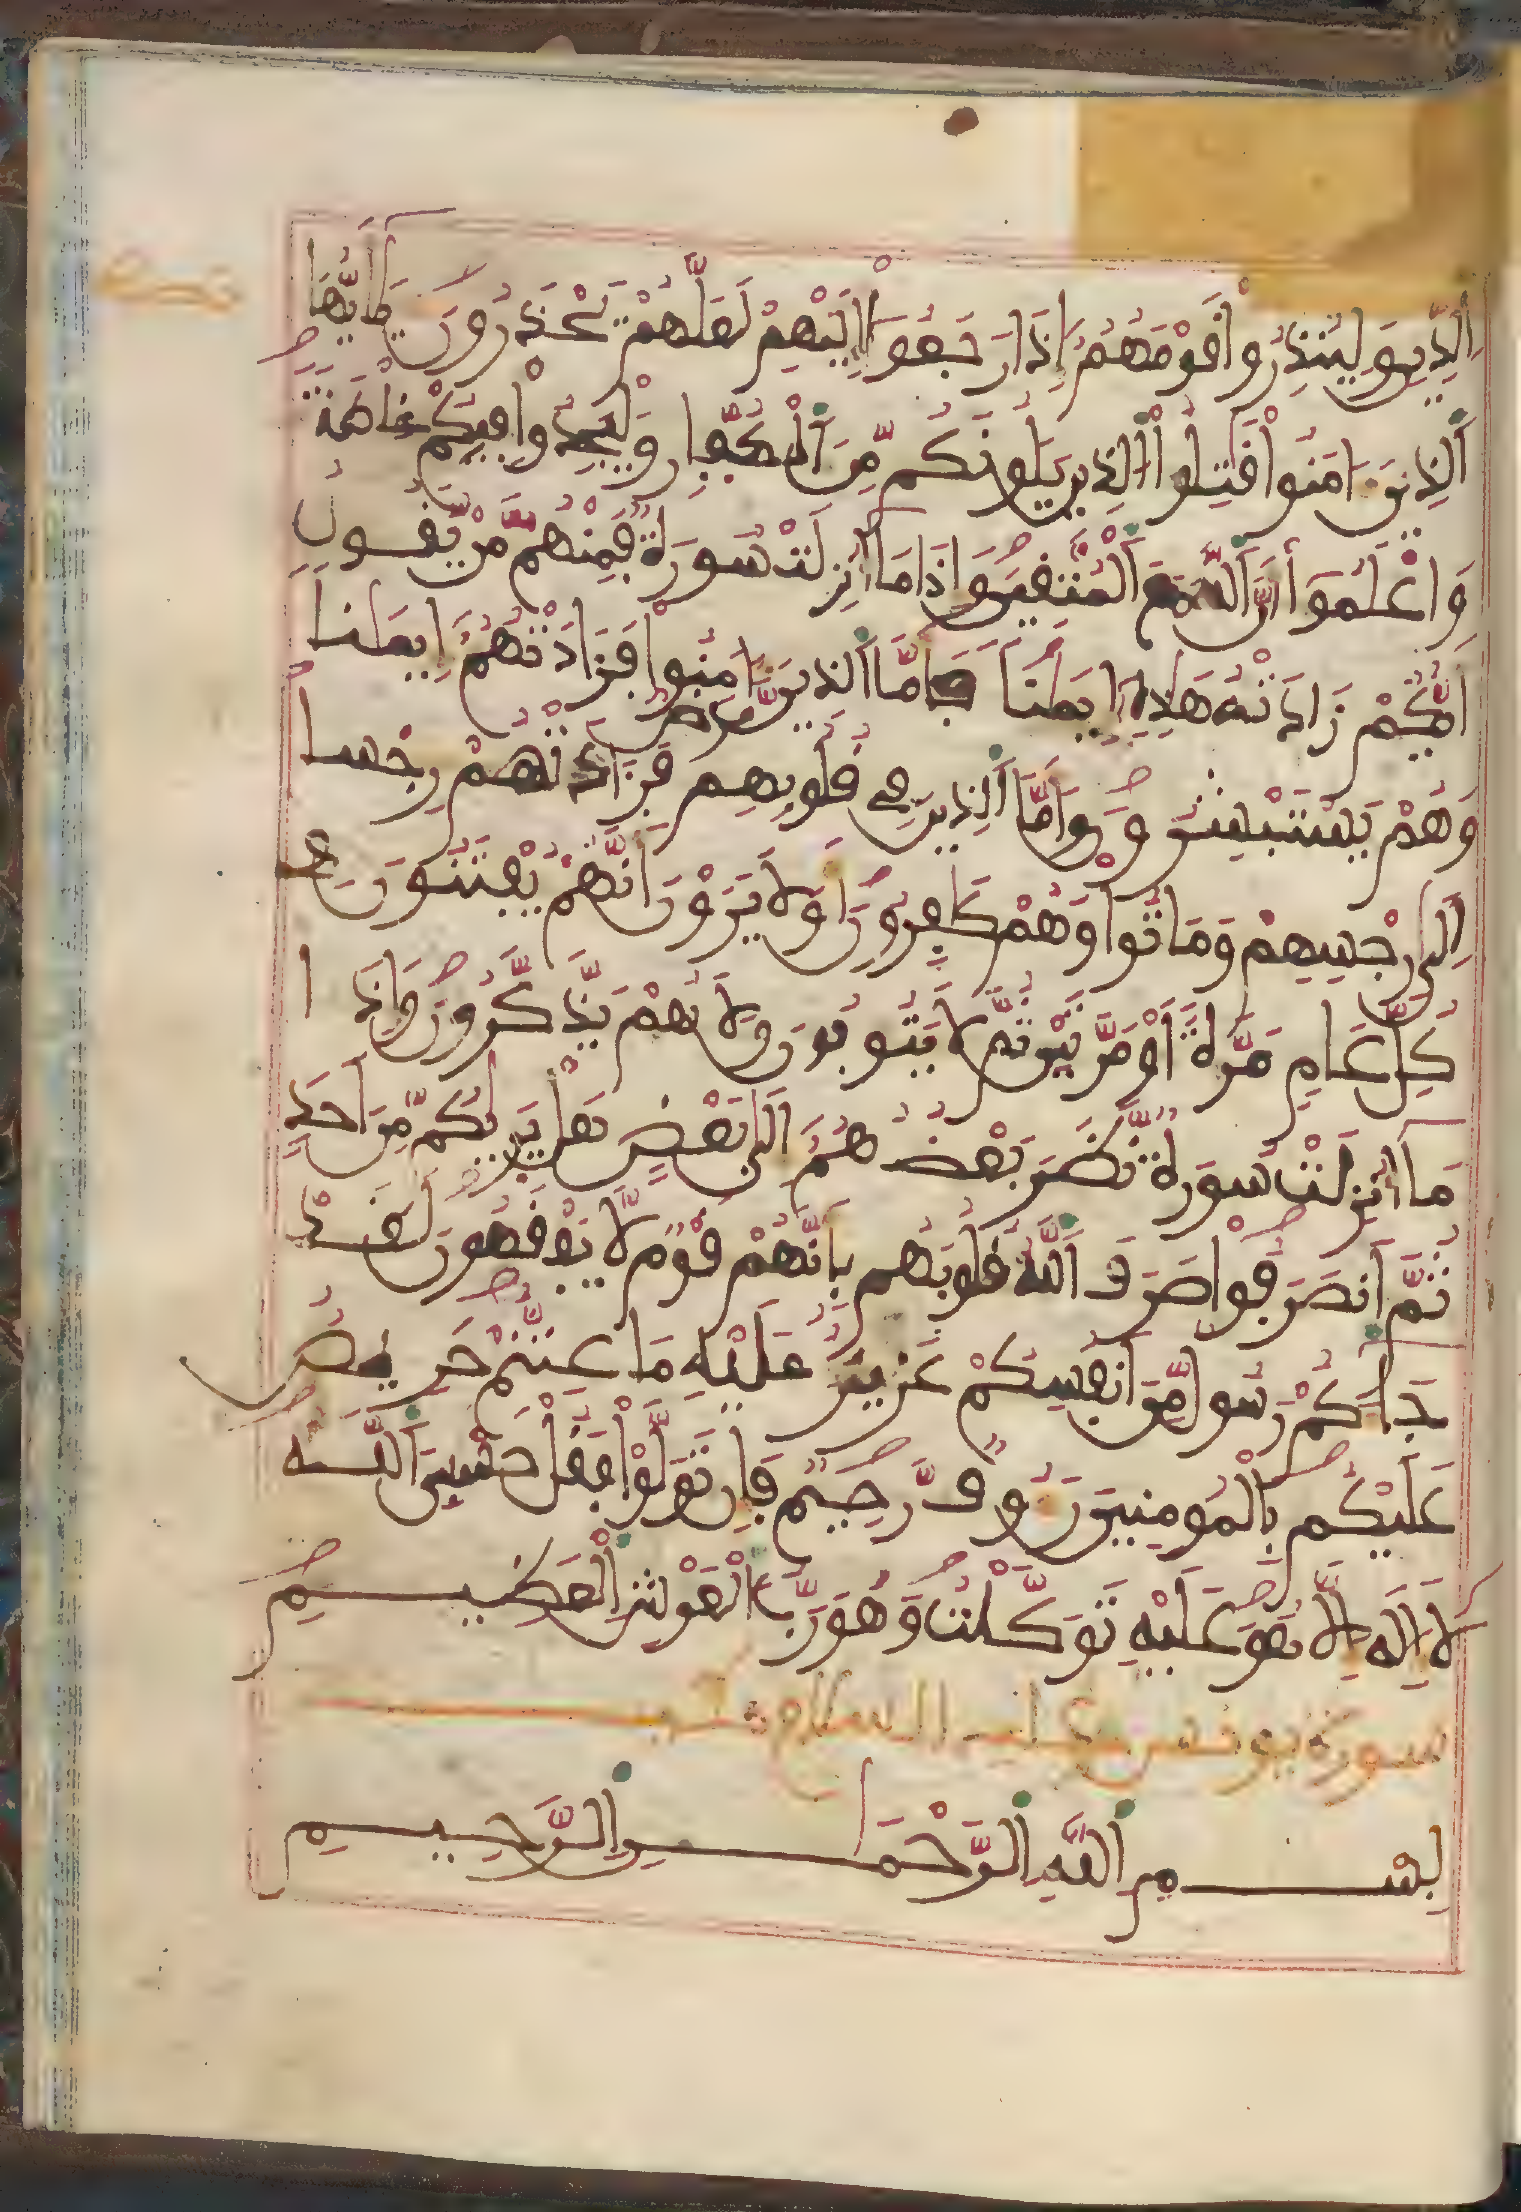 اَلدِّينِ وَلِيُنذِرُواْ قَوْمَهُمُۥٓ إِذَا رَجَعُوٓاْ إِلَيْهِمْ لَعَلَّهُمْ يَحْذَرُونَ يَٰٓأَيُّهَا
اَلذِينَ ءَامَنُواْ قَٰتِلُواْ اُلذِينَ يَلُونَكُم مِّنَ اَلْكُفّ۪ارِ وَلْيَجِدُواْ فِيكُمْ غِلْظَةً
وَاعْلَمُوٓاْ أَنَّ اَللَّهَ مَعَ اَلْمُتَّقِينَ وَإِذَا مَآ أُنزِلَتْ سُورَةٌ فَمِنْهُم مَّنْ يَّقُولُ
أَيُّكُمْ زَادَتْهُ هَٰذِهِۦٓ إِيمَٰناً فَأَمَّا اَلذِينَ ءَامَنُواْ فَزَادَتْهُمُۥٓ إِيمَٰناً
وَهُمْ يَسْتَبْشِرُونَ وَأَمَّا اَلذِينَ فِے قُلُوبِهِم مَّرَضٌ فَزَادَتْهُمْ رِجْساً
إِلَىٰ رِجْسِهِمْ وَمَاتُواْ وَهُمْ كَافِرُونَ أَوَلَا يَرَوْنَ أَنَّهُمْ يُفْتَنُونَ فِے
كُلِّ عَامٍ مَّرَّةً أَوْ مَرَّتَيْنِ ثُمَّ لَا يَتُوبُونَ وَلَا هُمْ يَذَّكَّرُونَ وَإِذَا
مَآ أُنزِلَتْ سُورَةٌ نَّظَرَ بَعْضُهُمُۥٓ إِلَىٰ بَعْضٍ هَلْ يَر۪يٰكُم مِّنَ اَحَدٍ
ثُمَّ اَنصَرَفُواْ صَرَفَ اَللَّهُ قُلُوبَهُم بِأَنَّهُمْ قَوْمٌ لَّا يَفْقَهُونَ لَقَدْ
جَآءَكُمْ رَسُولٌ مِّنَ اَنفُسِكُمْ عَزِيزٌ عَلَيْهِ مَا عَنِتُّمْ حَرِيصٌ
عَلَيْكُم بِالْمُومِنِينَ رَءُوفٌ رَّحِيمٌ فَإِن تَوَلَّوْاْ فَقُلْ حَسْبِيَ اَللَّهُ
لَآ إِلَٰهَ إِلَّا هُوَ عَلَيْهِ تَوَكَّلْتُ وَهُوَ رَبُّ اُلْعَرْشِ اِلْعَظِيمِ
سورة يونس عليه السلام
بِسْمِ اِللَّهِ اِلرَّحْمَٰنِ اِلرَّحِيمِ